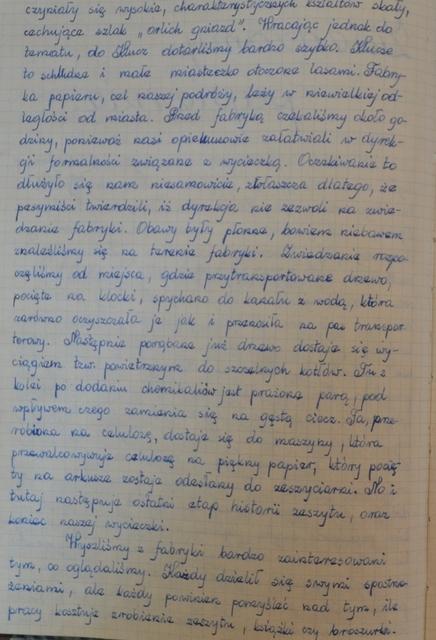 czyniały się wysokie, charakterystycznych kształtów skały,
cechujące szlak „orlich gniazd". Wracając jednak do
tematu, do Klucz dotarliśmy bardzo szybko. Klucze
to schludne i małe miasteczko otoczone lasami. Fabry-
ka papieru, cel naszej podróży, leży w niewielkiej od-
ległości od miasta. Przed fabryką czekaliśmy około go-
dziny, ponieważ nasi opiekunowie załatwiali w dyrek-
cji formalności związane z wycieczką. Oczekiwanie to
dłużyło się nam niesamowicie, zwłaszcza dlatego, że
pesymiści twierdzili, iż dyrekcja nie zezwoli na zwie-
dzanie fabryki. Obawy były płonne, bowiem niebawem
znaleźliśmy się na terenie fabryki. Zwiedzanie rozpo-
częliśmy od miejsca, gdzie przytransportowane drzewo,
pocięte na klocki, spychano do kanału z wodą, która
zarówno oczyszczała je jak i przenosiła na pas transpor-
towy. Następnie porąbane już drzewo dostaje się wy-
ciągiem tzw. powietrznym do szczelnych kotłów. Tu z
kolei po dodaniu chemikaliów jest prażone parą, pod
wpływem czego zamienia się na gęstą ciecz. Ta, prze-
robiona na celulozę, dostaje się do maszyny, która
przewalcowywuje celulozę na piękny papier, który pocię-
ty na arkusze zostaje odesłany do zeszyciarni. No i
tutaj następuje ostatni etap historii zeszytu, oraz
koniec naszej wycieczki.
Wyszliśmy z fabryki bardzo zainteresowani
tym, co oglądaliśmy. Każdy dzielił się swymi spostrze-
żeniami, ale każdy powinien pomyśleć nad tym, ile
pracy kosztuje zrobienie zeszytu, książki czy broszurki.